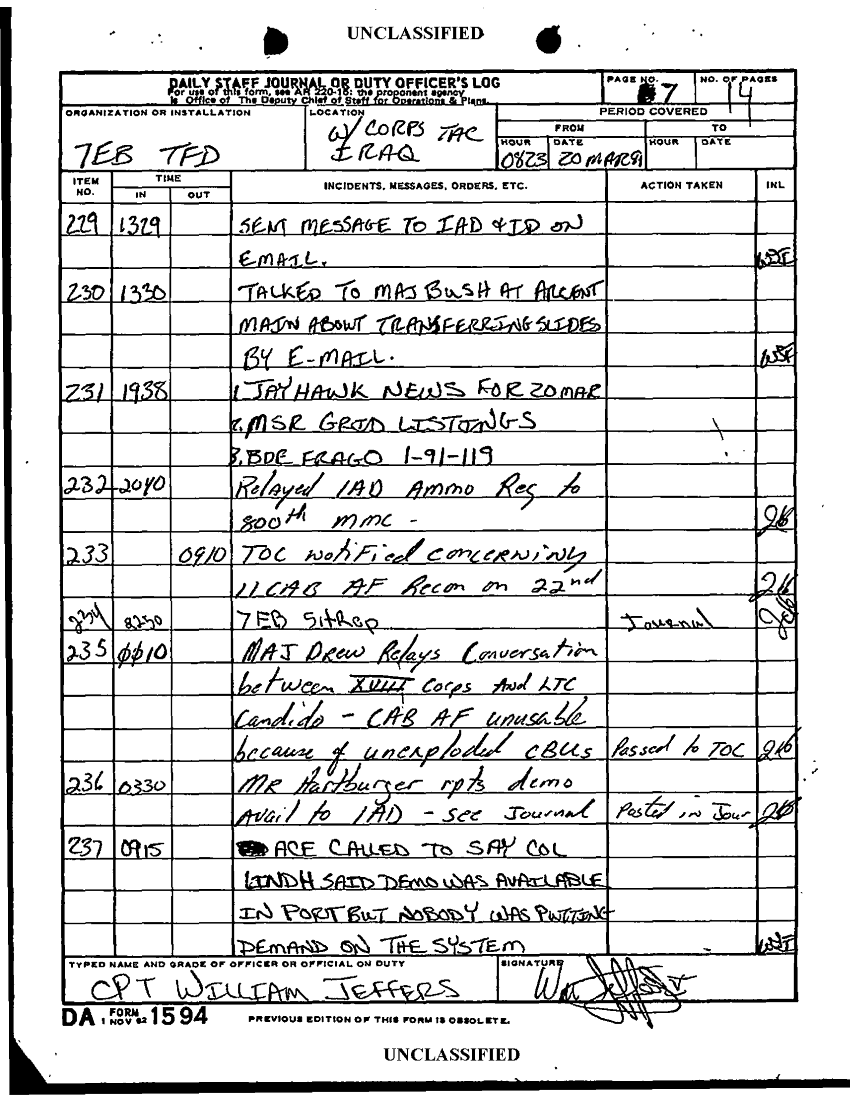 UNCLASSIFIED
DAILY STAFF JOURNAL OR DUTY OFFICER'S LOG
For use of this form, see AR 220-15; the proponent agency
is Office of The Deputy Chief of Staff for Operations & Plans.
PAGE NO.
7
NO. OF PAGES
14
ORGANIZATION OR INSTALLATION
7EB TFD
LOCATION
W/ CORPS TAC
IRAQ
PERIOD COVERED
FROM
TO
HOUR
DATE
HOUR
DATE
0823
20 MAR 91
ITEM NO.
TIME
IN
OUT
INCIDENTS, MESSAGES, ORDERS, ETC.
ACTION TAKEN
INL
229 1329 SENT MESSAGE TO 1AD & ID ON
EMAIL. WSF
230 1330 TALKED TO MAJ BUSH AT ARCENT
MAIN ABOUT TRANSFERRING SLIDES
BY E-MAIL. WSF
231 1938 1. JAYHAWK NEWS FOR 20 MAR
2. MSR GRID LISTINGS
3. BDE FRAGO 1-91-119
232 2040 Relayed 1AD Ammo Req to
800th MMC -
233 0910 TOC notified concerning
11 CAB AF Recon on 22nd
234 7EB SitRep Journal
235 0010 MAJ Drew Relays Conversation
between XVIII Corps And LTC
Candido - CAB AF unusable
because of unexploded CBUs Passed to TOC
236 0330 MR Hartburger rpts demo
Avail to 1AD - see Journal Posted in Jour
237 0915 ACE CALLED TO SAY COL
LINDH SAID DEMO WAS AVAILABLE
IN PORT BUT NOBODY WAS PUTTING
DEMAND ON THE SYSTEM WSF
TYPED NAME AND GRADE OF OFFICER OR OFFICIAL ON DUTY
CPT WILLIAM JEFFERS
SIGNATURE
DA FORM 1 NOV 62 1594
PREVIOUS EDITION OF THIS FORM IS OBSOLETE.
UNCLASSIFIED